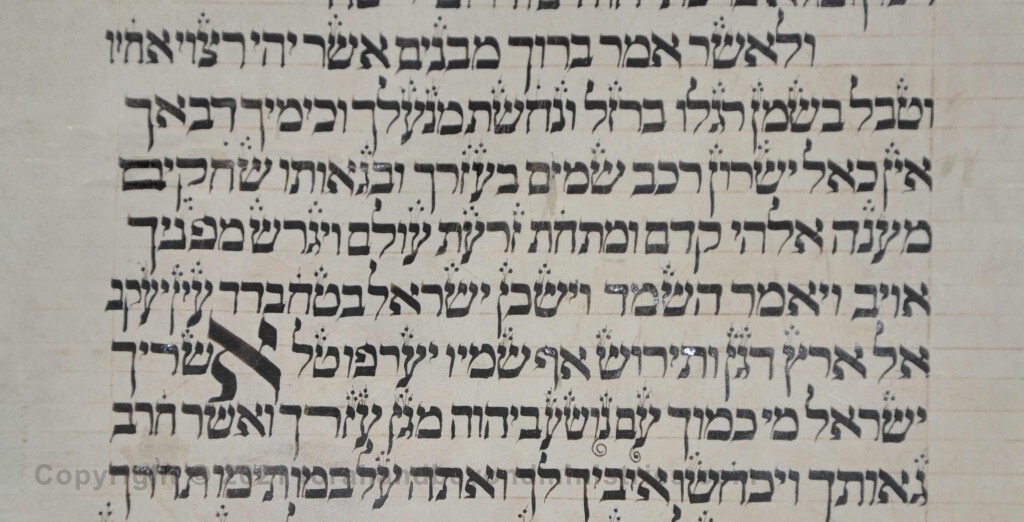 ולאשר אמר ברוך מבנים אשר יהי רצוי אחיו
וטבל בשמן רגלו ברזל ונחשת מנעלך וכימיך דבאך
אין כאל ישרון רכב שמים בעזרך ובגאותו שחקים
מענה אלהי קדם ומתחת זרעת עולם ויגרש מפניך
אויב ויאמר השמד וישכן ישראל בטח בדד עין יעקב
אל ארץ דגן ותירוש אף שמיו יערפו טל אשריך
ישראל מי כמוך עם נושע ביהוה מגן עזרך ואשר חרב
גאותך ויכחשו איביך לך ואתה על במותימו תדרך